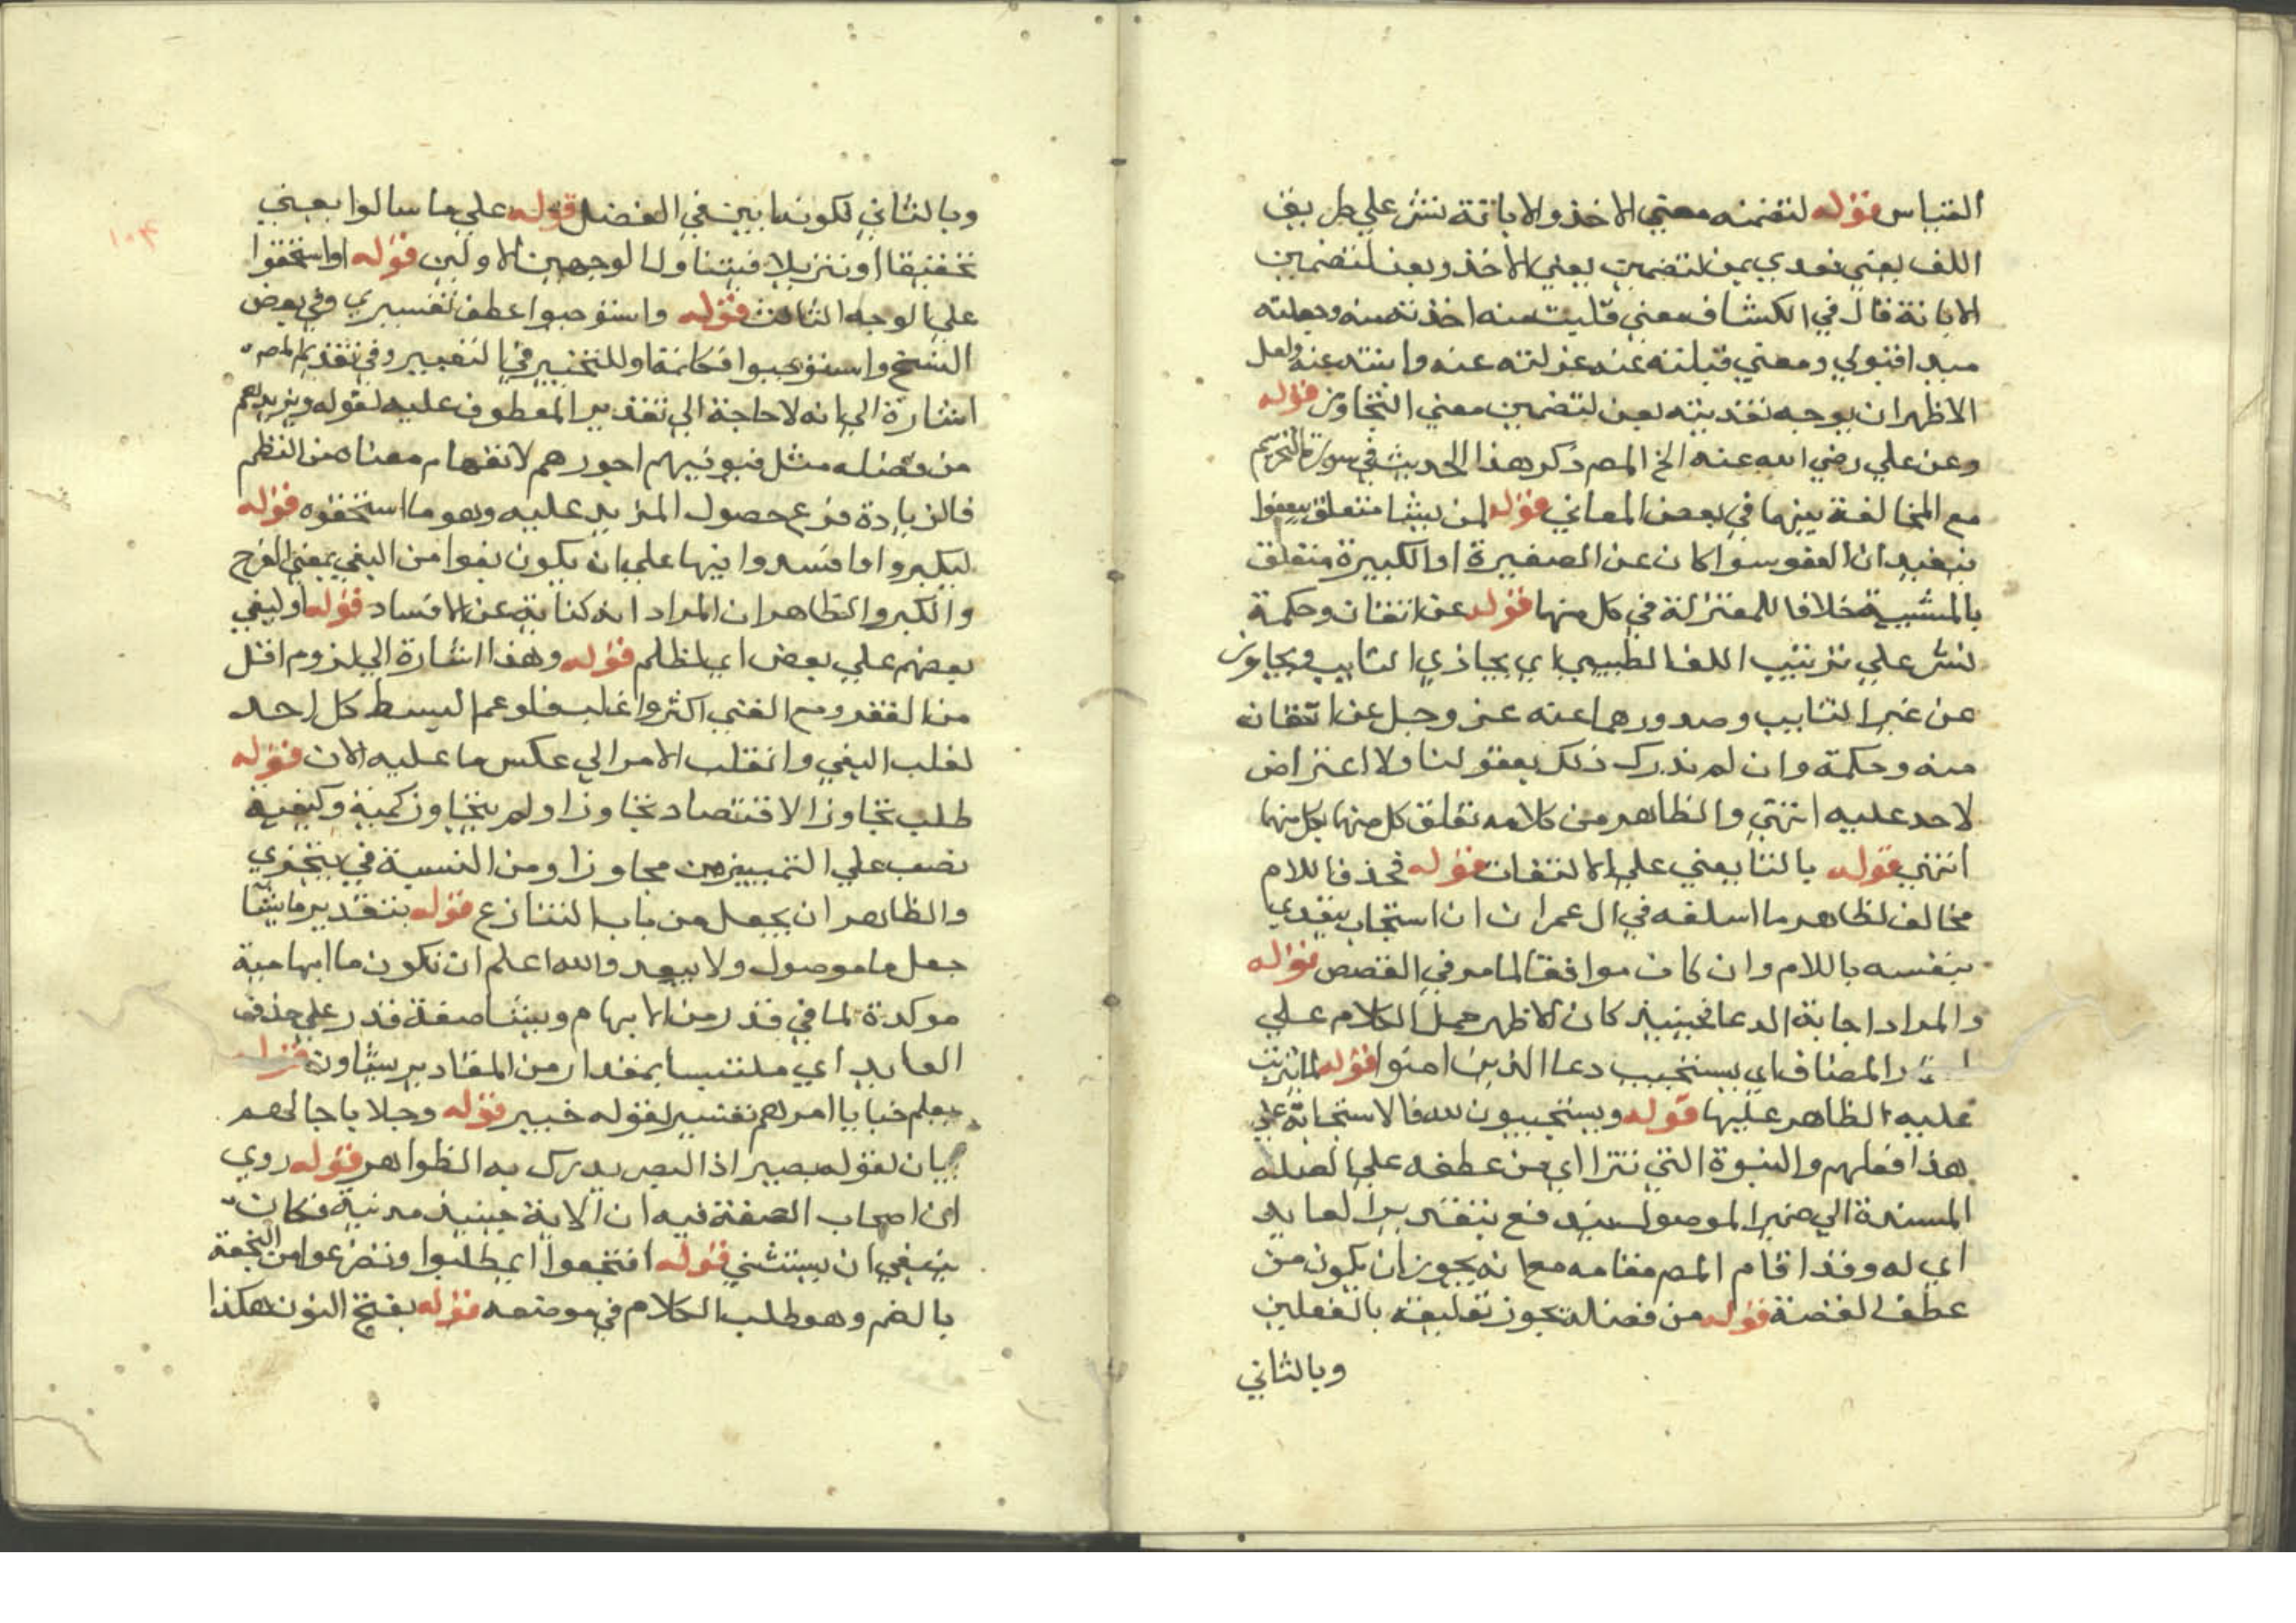 القياس قوله لتضمنه معني الاخذ والابانة نشر علي طريق
اللف يعني تعدي بمن لتضمين يعني الاخذ وبعن لتضمين
الابانة قال في الكشاف معني قبلت منه اخذته منه وجعلته
مبدا قبولي ومعني قبلته عنه عزلته عنه وابنته عنه ولعل
الاظهر ان يوجه تعديته بعن لتضمين معني التجاوز قوله
وعن علي رضي الله عنه الخ المص ذكر هذا الحديث في سورة التحريم
مع المخالفة بينهما في بعض المعاني قوله لمن يشا متعلق بيعفوا
فيفيد ان العفو سوا كان عن الصغيرة او الكبيرة متعلق
بالمشيية خلافا للمعتزلة في كل منها قوله عن اتقان وحكمة
نشر علي ترتيب اللف الطبيعي اي يجازي التايب ويجاوز
عن غير التايب وصدورهما عنه عز وجل عن اتقان
منه وحكمة وان لم ندرك ذلك بعقولنا ولا اعتراض
لاحد عليه انتهي والظاهر من كلامه تعلق كل منهما بكل منهما
انتهي قوله بالتا يعني علي الالتفات قوله فحذف اللام
مخالف لظاهر ما اسلفه في ال عمران ان استجاب يتعدي
بنفسه باللام وان كان موافقا لما مر في القصص قوله
والمراد اجابة الدعا فحينيذ كان الاظهر حمل الكلام علي
المضاف اي يستجيب دعا الذين امنوا قوله لما يترتب
عليه الظاهر عليها قوله ويستجيبون لله فالاستجابة علي
هذا فعلهم والنبوة التي تترا اي من عطفه علي الصلة
المسندة الي ضمير الموصول سيدفع بتقدير العايد
اي له وقد اقام المص مقامه مع انه يجوز ان يكون من
عطف القصة قوله من فضله يجوز تعليقه بالفعلين
وبالثاني
١٠٣
وبالثاني لكونها بين في الفضل قوله علي ما سالوا يعني
تحقيقا او تنزيلا فيتناول الوجهين الاولين قوله او استحقوا
علي الوجه الثالث قوله واستوجبوا عطف تفسيري وفي بعض
النسخ واستوجبوا فكانه او للتخيير في التعبير وفي تقديم المص
اشارة الي انه لا حاجة الي تقدير المعطوف عليه لقوله ويزيدهم
من فضله مثل فيوفيهم اجورهم لانفهام معناه من النظم
فالزيادة فرع حصول المزيد عليه وهو ما استحقوه قوله
لتكبروا وافسدوا فيها علي بان يكون بغوا من البغي بمعني الفرح
والكبر والظاهر ان المراد انه كناية عن الافساد قوله او لبغي
بعضهم علي بعض اي لظلم قوله وهذا اشارة الي لزوم اقل
من الفقر ومع الغني اكثر واغلب فلو عم البسط كل احد
لغلب البغي وانقلب الامر الي عكس ما عليه الان قوله
طلب تجاوز الاقتصاد تجاوزا ولم يتجاوز كمية وكيفية
نصب علي التمييز من مجاوزا ومن النسبة في يتحري
والظاهر ان يجعل من باب التنازع قوله بتقدير ما يشا
جعل ما موصول ولا يبعد والله اعلم ان تكون ما ابهامية
موكدة لما في قدر من الابهام ويشا صفة قدر علي حذف
العايد اي ملتبسا بمقدار من المقادير يشاوه قوله
يعلم خبايا امرهم تفسير لقوله خبير قوله وجلايا حالهم
بيان لقوله بصير اذ البصر يدرك به الظواهر قوله روي
ان اصحاب الصفة فيه ان الاية حينيذ مدنية فكان
ينبغي ان يستثني قوله انتجعوا اي طلبوا وتضرعوا من النجعة
بالضم وهو طلب الكلام في موضعه قوله بفتح النون هكذا